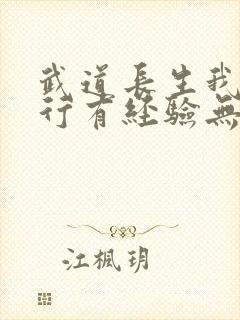 武道長生我
行有經驗無
江楓玥